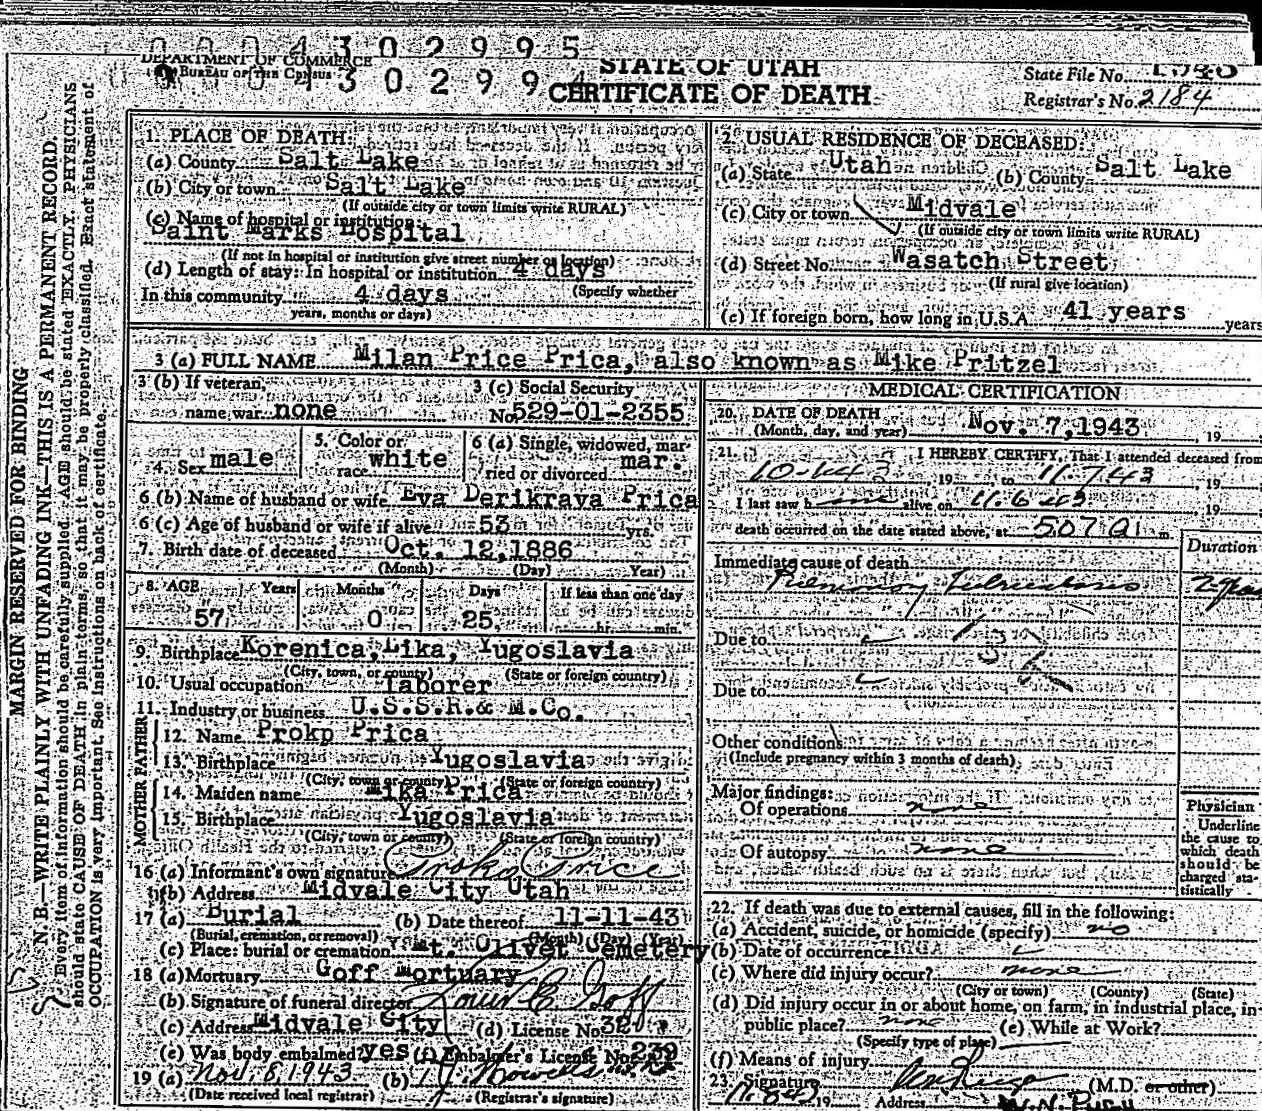 0 0 0 4 3 0 2 9 9 5
DEPARTMENT OF COMMERCE
BUREAU OF THE CENSUS
3 0 2 9 9 4
STATE OF UTAH
CERTIFICATE OF DEATH
State File No.
Registrar's No. 2184
MARGIN RESERVED FOR BINDING
N. B.—WRITE PLAINLY WITH UNFADING INK—THIS IS A PERMANENT RECORD.
Every item of information should be carefully supplied. AGE should be stated EXACTLY. PHYSICIANS
should state CAUSE OF DEATH in plain terms, so that it may be properly classified. Exact statement of
OCCUPATION is very important. See Instructions on back of certificate.
1. PLACE OF DEATH:
(a) County Salt Lake
(b) City or town Salt Lake
(If outside city or town limits write RURAL)
(c) Name of hospital or institution:
Saint Marks Hospital
(If not in hospital or institution give street number or location)
(d) Length of stay: In hospital or institution 4 days
(Specify whether
In this community 4 days
years, months or days)
2. USUAL RESIDENCE OF DECEASED:
(a) State Utah (b) County Salt Lake
(c) City or town Midvale
(If outside city or town limits write RURAL)
(d) Street No. Wasatch Street
(If rural give location)
(e) If foreign born, how long in U.S.A. 41 years years
3 (a) FULL NAME Milan Price Prica, also known as Mike Pritzel
3 (b) If veteran,
name war none
3 (c) Social Security
No. 529-01-2355
4. Sex male
5. Color or
race white
6 (a) Single, widowed, mar-
ried or divorced mar.
6 (b) Name of husband or wife Eva Derikrava Prica
6 (c) Age of husband or wife if alive 53 yrs.
7. Birth date of deceased Oct. 12,1886
(Month) (Day) Year)
8. AGE Years Months Days If less than one day
57 0 25 hr. min.
9. Birthplace Korenica, Lika, Yugoslavia
(City, town, or county) (State or foreign country)
10. Usual occupation laborer
11. Industry or business U.S.S.R.& M.Co.
FATHER
12. Name Prokp Prica
13. Birthplace Yugoslavia
(City, town or county) (State or foreign country)
MOTHER
14. Maiden name Mika Prica
15. Birthplace Yugoslavia
(City, town or county) (State or foreign country)
16 (a) Informant's own signature Proko Price
(b) Address Midvale City Utah
17 (a) Burial (b) Date thereof 11-11-43
(Burial, cremation, or removal) (Month) (Day) (Year)
(c) Place: burial or cremation Mt. Olivet Cemetery
18 (a) Mortuary Goff Mortuary
(b) Signature of funeral director Louis E Goff
(c) Address Midvale City (d) License No. 32
(e) Was body embalmed? yes (f) Embalmer's License No. 239
19 (a) Nov. 8, 1943 (b)
(Date received local registrar) (Registrar's signature)
MEDICAL CERTIFICATION
20. DATE OF DEATH
(Month, day, and year) Nov. 7,1943, 19
21. I HEREBY CERTIFY, That I attended deceased from
19 to 11.7.43 19
I last saw h alive on 11.6.43 19
death occurred on the date stated above, at 507 a m.
Duration
Immediate cause of death
Pulmonary Tuberculosis
Due to
Due to
Other conditions
(Include pregnancy within 3 months of death)
Major findings:
Of operations none
Of autopsy none
Physician
Underline
the cause to
which death
should be
charged sta-
tistically
22. If death was due to external causes, fill in the following:
(a) Accident, suicide, or homicide (specify) no
(b) Date of occurrence
(c) Where did injury occur? none
(City or town) (County) (State)
(d) Did injury occur in or about home, on farm, in industrial place, in
public place? none (e) While at Work?
(Specify type of place)
(f) Means of injury
23. Signature (M.D. or other)
19 Address